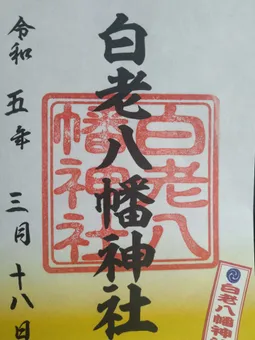 白老八幡神社
令和五年三月十八日
白老八
幡神社
白老八幡神社